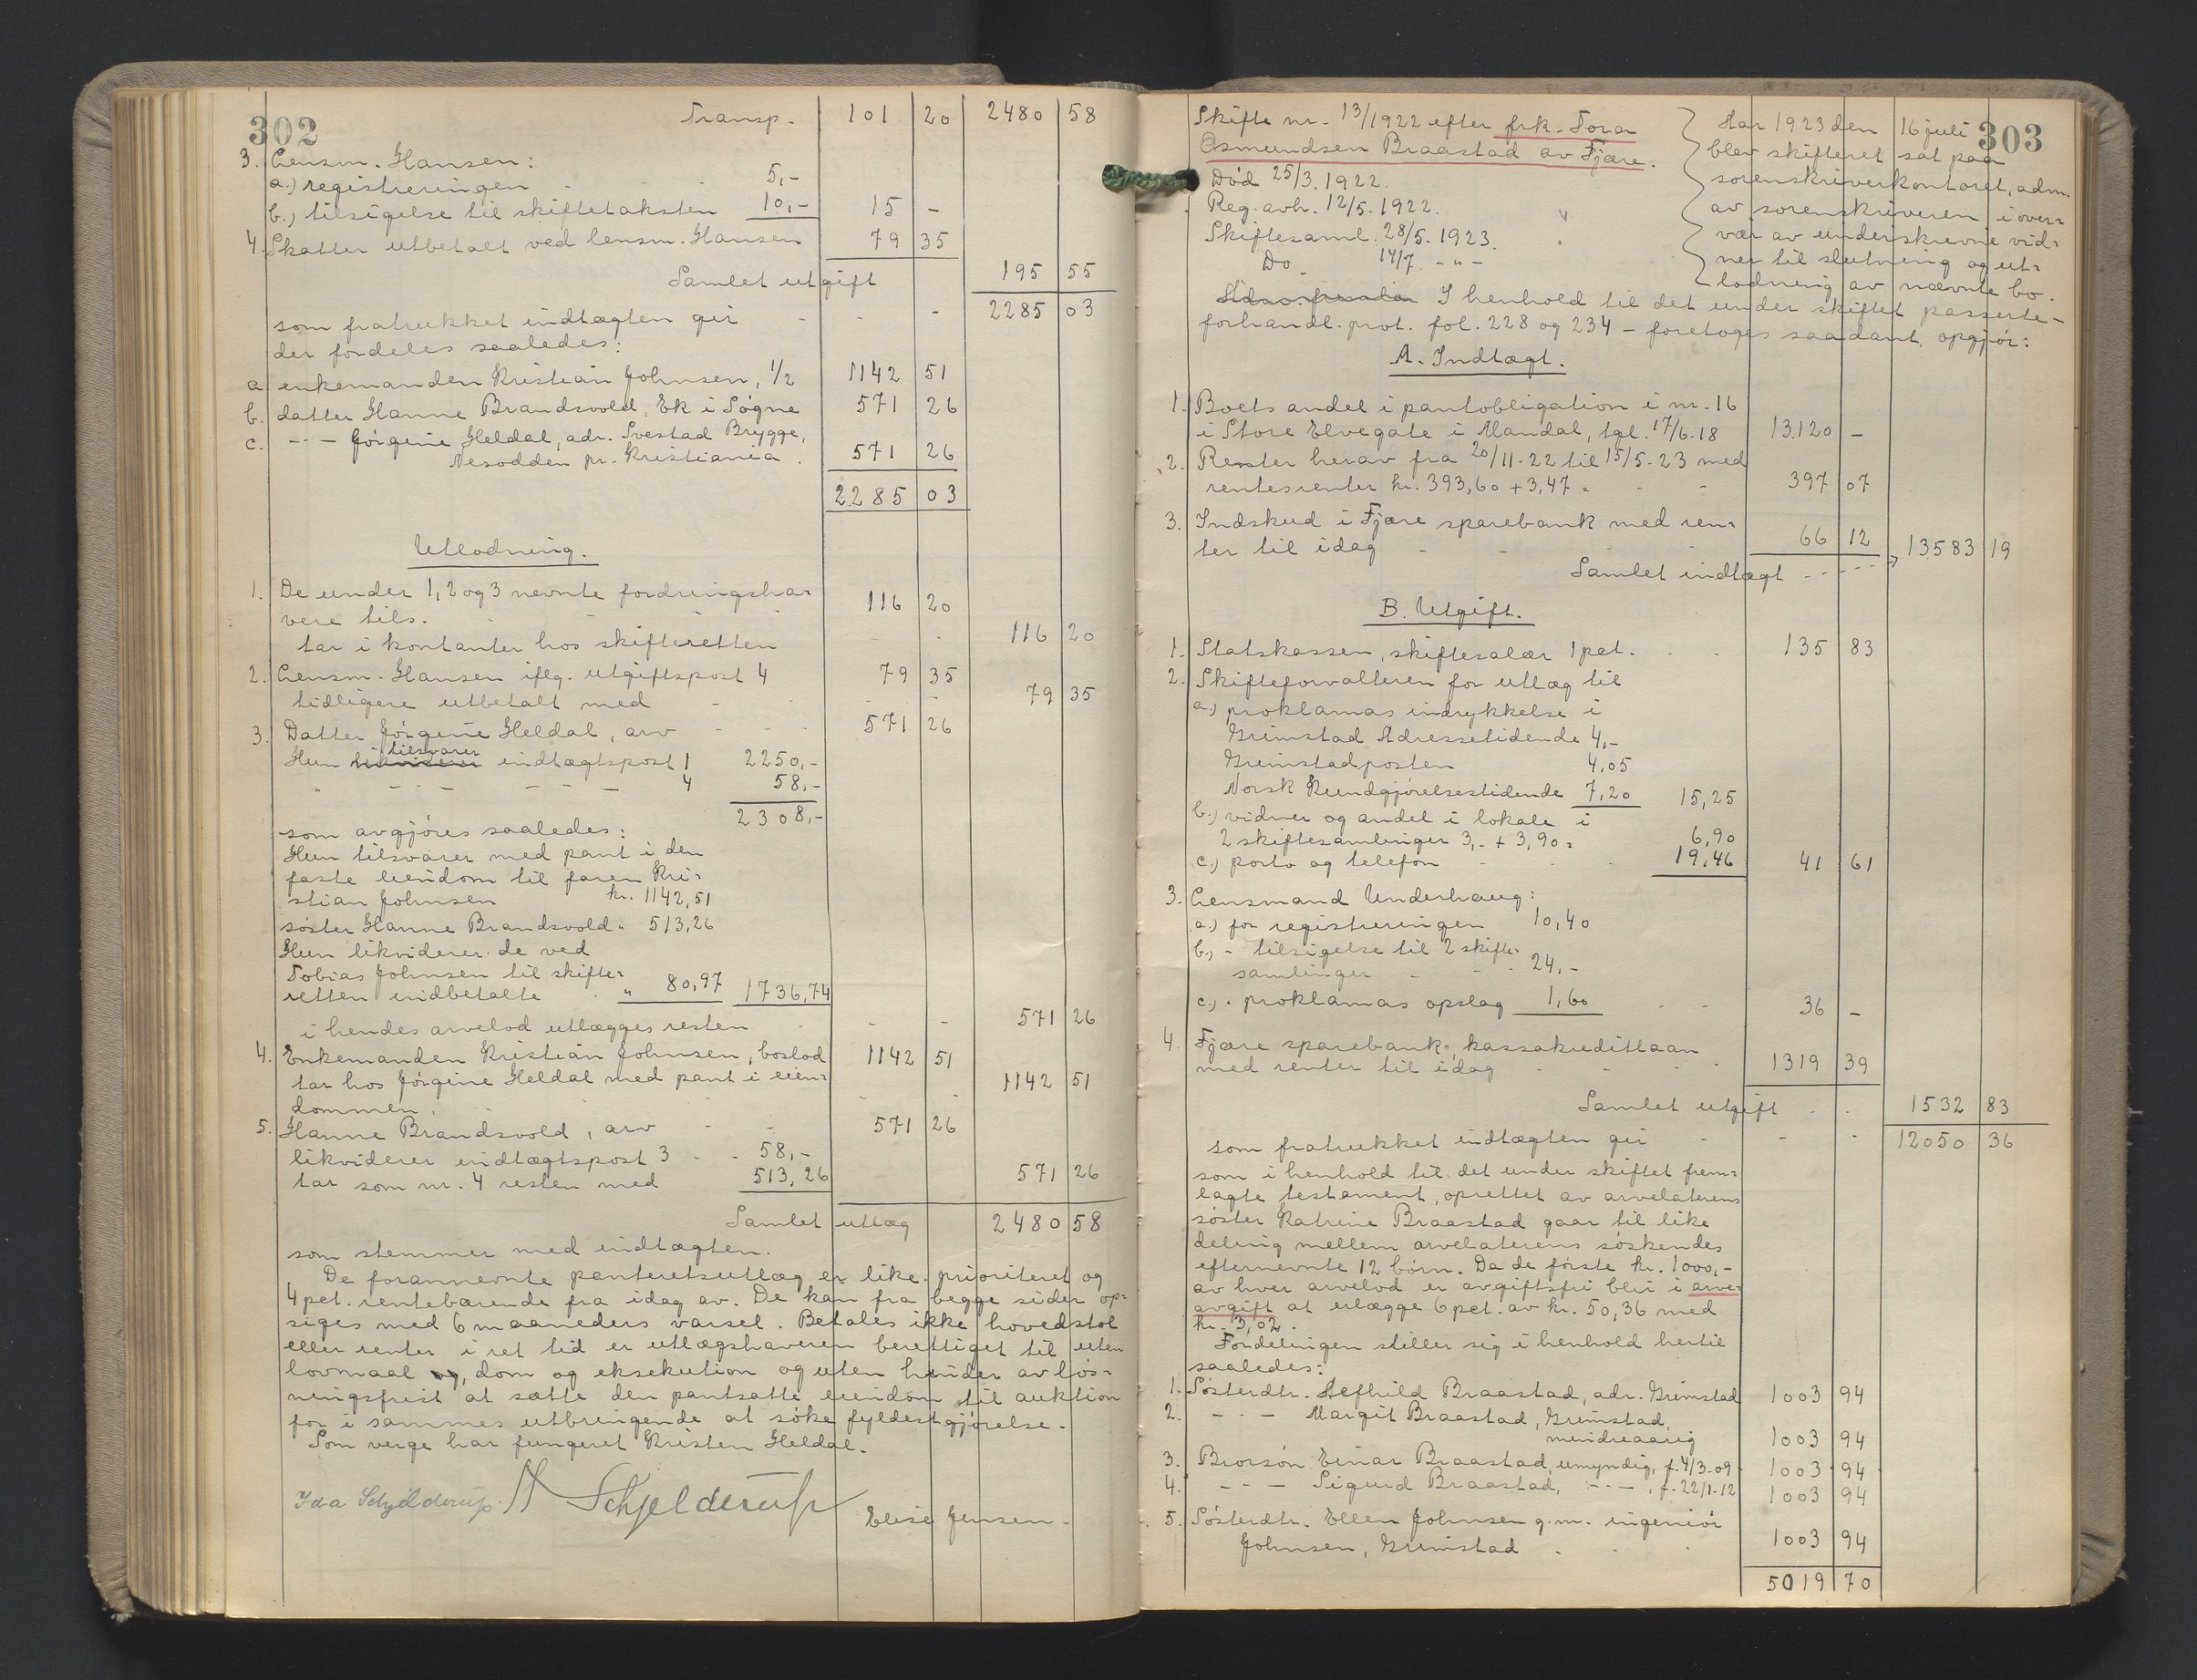 302
Transp. 101 20 2480 58
3. Lensm. Hansen:
a.) registreringen 5,-
b.) tilsigelse til skiftetaksten 10,- 15 -
4. Skatter utbetalt ved lensm. Hansen 79 35
Samlet utgift 195 55
som fratrukket indtægten gir - - - 2285 03
der fordeles saaledes:
a. enkemanden Kristian Johnsen, 1/2 1142 51
b. datter Hanne Brandsvold, Ek i Søgne 571 26
c. -"- Jørgine Heldal, adr. Svestad Brygge,
Nesodden pr. Kristiania. 571 26
2285 03
Utlodning.
1. De under 1, 2 og 3 nevnte fordringsha-
vere tils. 116 20
tar i kontanter hos skifteretten - - 116 20
2. Lensm. Hansen iflg. utgiftspost 4 79 35
tidligere utbetalt med - - - 79 35
3. Datter Jørgine Heldal, arv - - 571 26
Hun likviderer tilsvarer indtægtspost 1 2250,-
" - - - - - - 4 58,-
2308,-
som avgjøres saaledes:
Hun tilsvarer med pant i den
faste eiendom til faren Kri-
stian Johnsen kr. 1142,51
søster Hanne Brandsvold " 513,26
Hun likviderer de ved
Tobias Johnsen til skifte-
retten indbetalte " 80,97 1736,74
i hendes arvelod utlægges resten - - - 571 26
4. Enkemanden Kristian Johnsen, boslod 1142 51
tar hos Jørgine Heldal med pant i eien- 1142 51
dommen.
5. Hanne Brandsvold, arv - - 571 26
likviderer indtægtspost 3 - - 58,-
tar som nr. 4 resten med 513,26 571 26
Samlet utlæg 2480 58
som stemmer med indtægten.
De forannevnte panteretsutlæg er like prioriteret og
4 pct. rentebærende fra idag av. De kan fra begge sider op-
siges med 6 maaneders varsel. Betales ikke hovedstol
eller renter i ret tid er utlægshaveren berettiget til uten
lovmaal og, dom og eksekution og uten hinder av løs-
ningsfrist at sætte den pantsatte eiendom til auktion
for i sammes utbringende at søke fyldestgjørelse.
Som verge har fungeret Kristen Heldal.
Ida Schjelderup. Schjelderup
Elise Jensen.
303
Skifte nr. 13/1922 efter frk. Tora
Osmundsen Braastad av Fjære.
Død 25/3. 1922.
Reg. avh. 12/5. 1922.
Skiftesaml. 28/5. 1923.
Do 14/7. -"-
Aar 1923 den 16 juli
blev skifteret sat paa
sorenskriverkontoret, adm.
av sorenskriveren i over-
vær av underskrevne vid-
ner til slutning og ut-
lodning av nævnte bo.
I henhold til det under skiftet passerte -
forhandl. prot. fol. 228 og 234 - foretoges saadant opgjør:
A. Indtægt.
1. Boets andel i pantobligation i nr. 16
i Store Elvegate i Mandal, tgl. 17/6-18 13120 -
2. Renter herav fra 20/11-22 til 15/5-23 med
rentesrenter kr. 393,60 + 3,47 = - - 397 07
3. Indskud i Fjære sparebank med ren-
ter til idag - - - 66 12
Samlet indtægt - - - - 13583 19
B. Utgift.
1. Statskassen, skiftesalær 1 pct. - - 135 83
2. Skifteforvalteren for utlæg til
a.) proklamas indrykkelse i
Grimstad Adressetidende 4,-
Grimstadposten 4,05
Norsk Kundgjørelsestidende 7,20 15,25
b.) vidner og andel i lokale i
2 skiftesamlinger 3,- + 3,90 = 6,90
c.) porto og telefon - - - 19,46 41 61
3. Lensmand Underhaug:
a.) for registreringen 10,40
b.) - tilsigelse til 2 skifte-
samlinger - - - 24,-
c.) - proklamas opslag 1,60 - - 36 -
4. Fjære sparebank, kassakreditlaan
med renter til idag - - - - 1319 39
Samlet utgift - - 1532 83
som fratrukket indtægten gir - - - 12050 36
som i henhold til det under skiftet frem-
lagte testament, oprettet av arvelaterens
søster Katrine Braastad gaar til like
deling mellem arvelaterens søskendes
efternevnte 12 børn. Da de første kr. 1000,-
av hver arvelod er avgiftsfri blir i arve-
avgift at erlægge 6 pct. av kr. 50,36 med
kr. 3,02.
Fordelingen stiller sig i henhold hertil
saaledes:
1. Søsterdtr. Aefhild Braastad, adr. Grimstad 1003 94
2. - - - Margit Braastad, Grimstad,
mindreaarig 1003 94
3. Brorsøn Einar Braastad, umyndig, f. 4/3-09 1003 94
4. - - - Sigurd Braastad, -"-, f. 22/1-12 1003 94
5. Søsterdtr. Ellen Johnsen g.m. ingeniør
Johnsen, Grimstad - - - 1003 94
5019 70